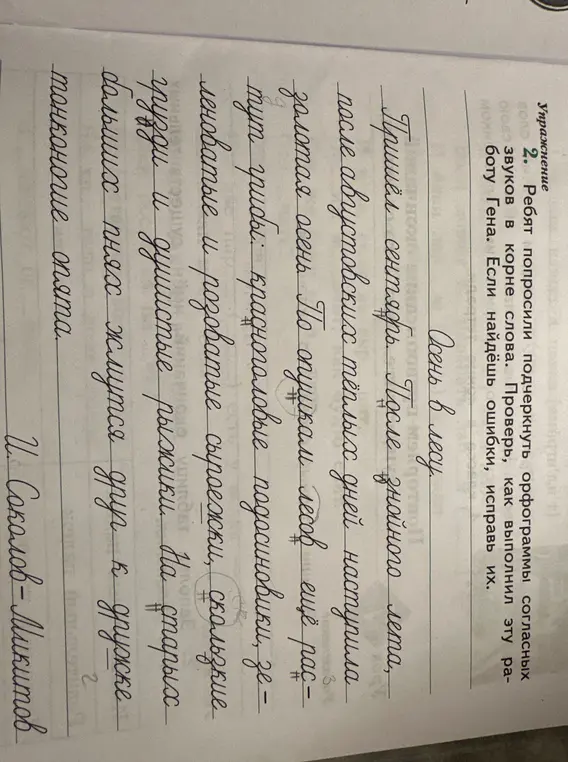 Упражнение
2. Ребят попросили подчеркнуть орфограммы согласных
звуков в корне слова. Проверь, как выполнил эту ра-
боту Гена. Если найдёшь ошибки, исправь их.
Осень в лесу.
Пришёл сентябрь. После знойного лета,
после августовских тёплых дней наступила
золотая осень. По опушкам лесов ещё рас-
тут грибы: красноголовые подосиновики, зе-
леноватые и розоватые сыроежки, скользкие
грузди и душистые рыжики. На старых
больших пнях жмутся друг к дружке
тонконогие опята.
И. Соколов-Микитов